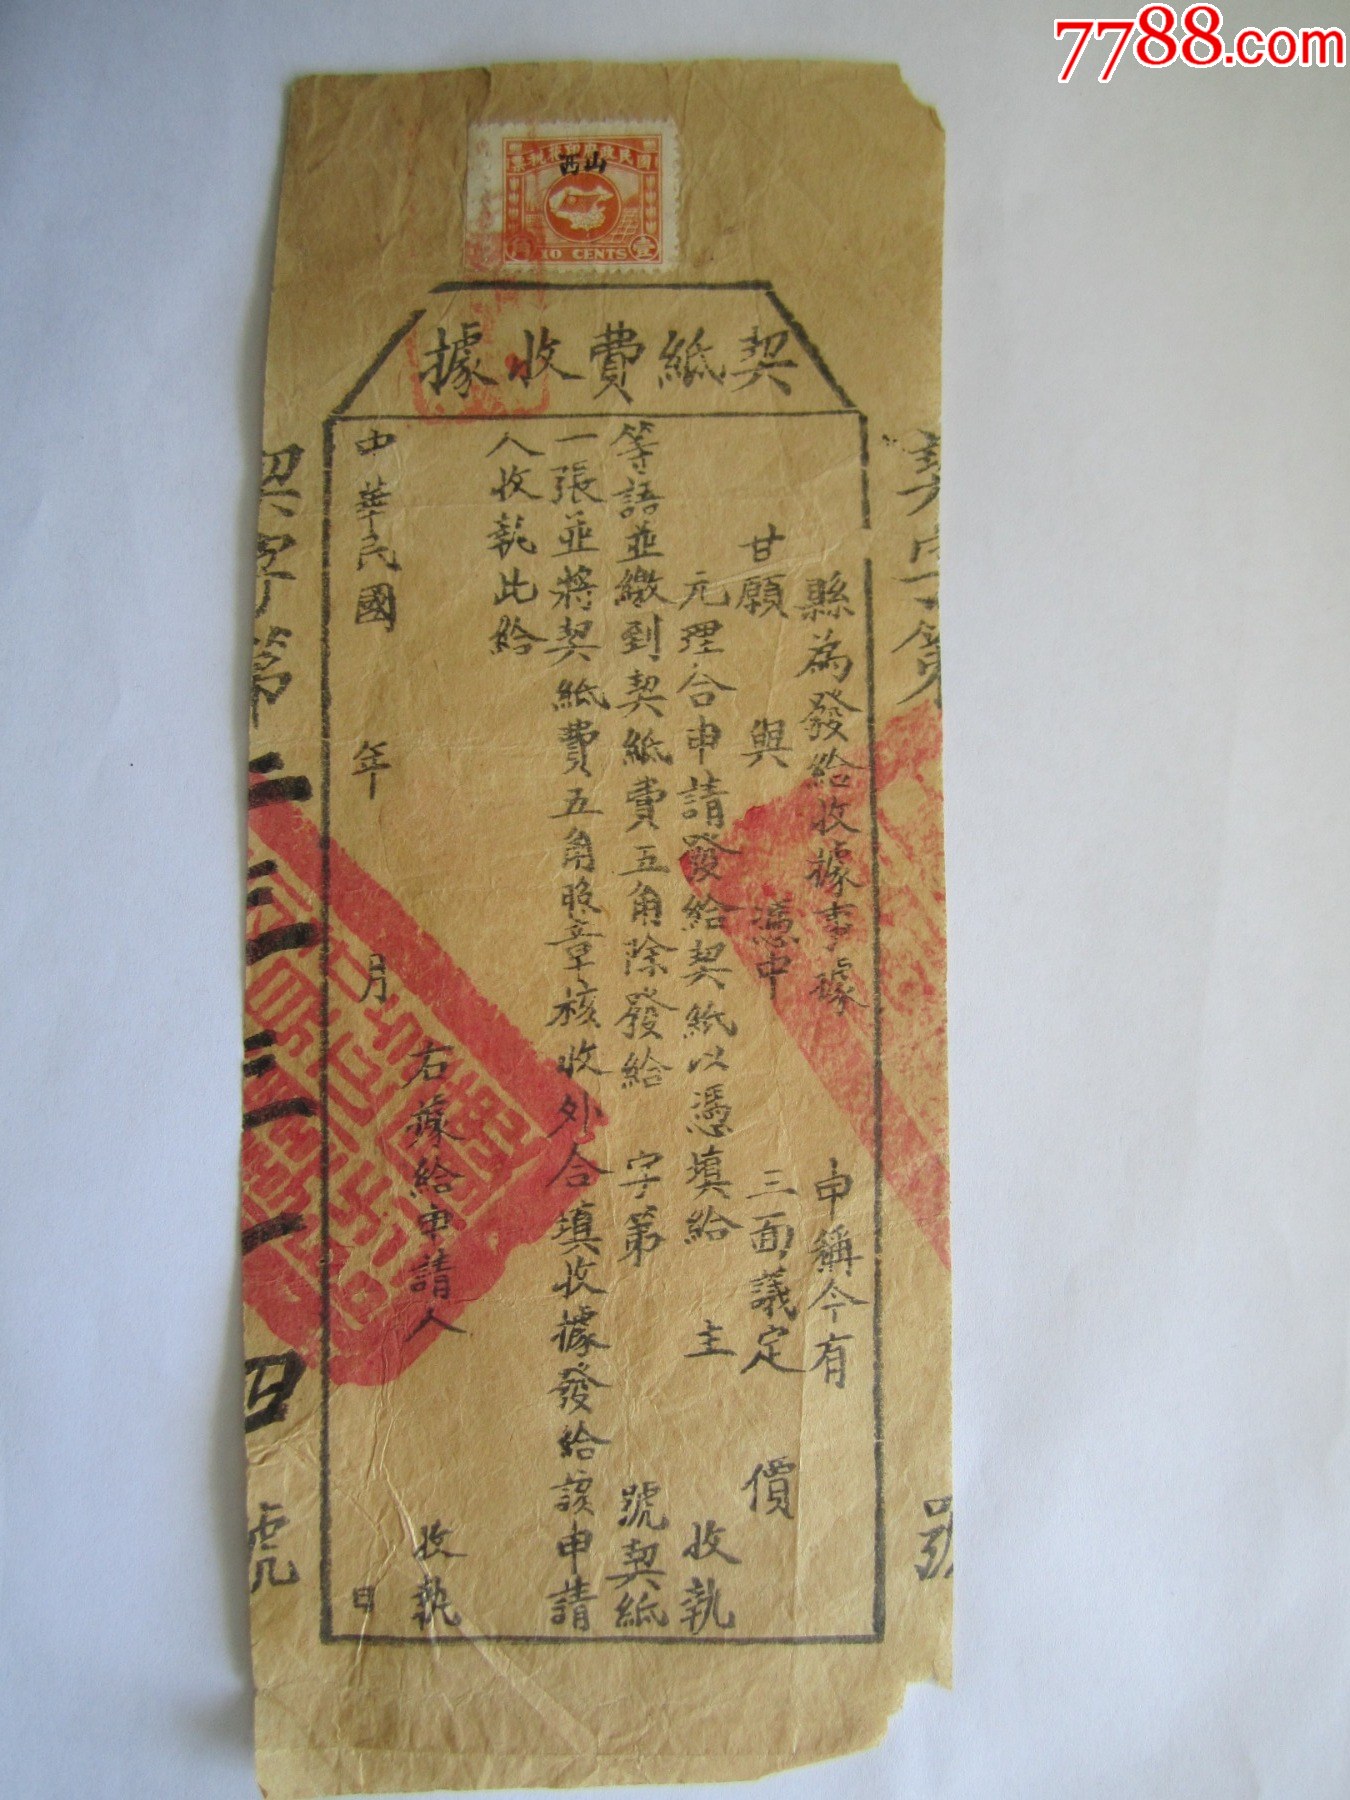 7788.com
國民政府印花稅票
山西
壹
角
10 CENTS
契紙費收據
契字第
號
縣為發給收據事據
申稱今有
甘願
與
憑中
三面議定
價
元理合申請發給契紙以憑填給
主
收執
等語並繳到契紙費五角除發給
字第
號契紙
一張並將契紙費五角照章核收外合填收據發給該申請
人收執此給
右據給申請人
收執
中華民國
年
月
日
契字第二三三一四號